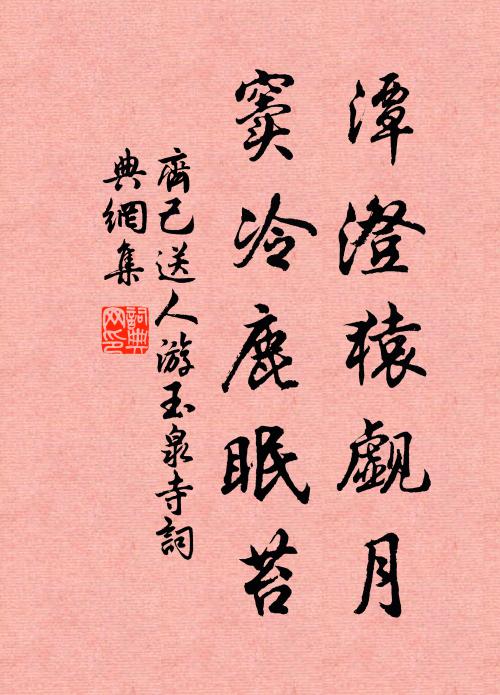 潭澄猿覷月
竇冷鹿眠苔
齊己送人游玉泉寺詞
典網集
詞典网印